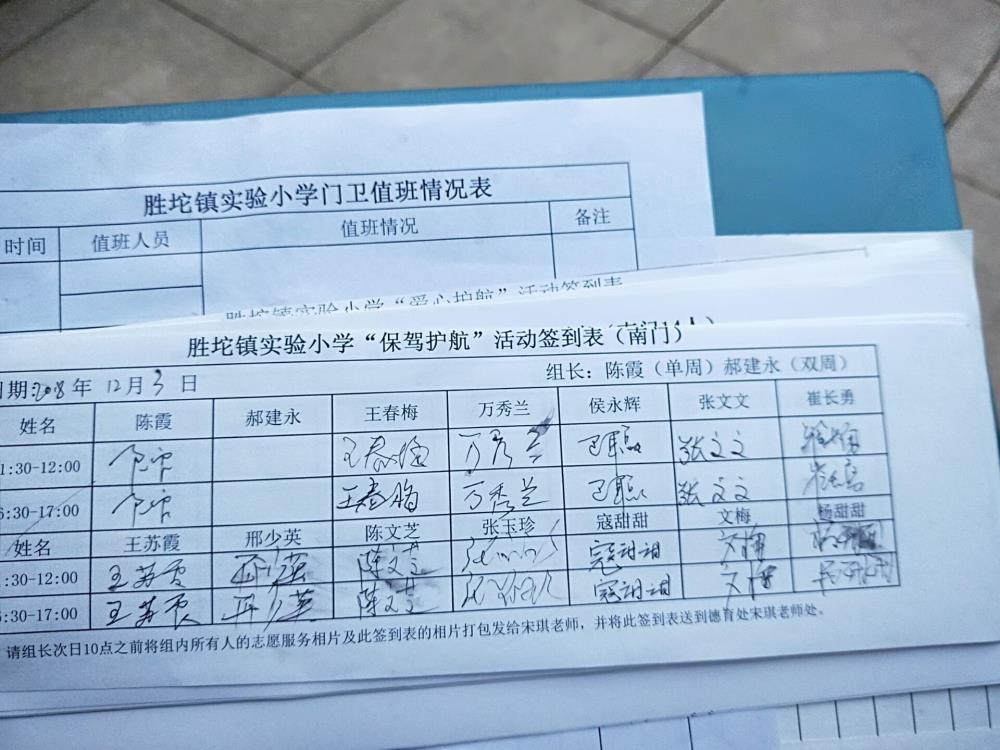 胜坨镇实验小学门卫值班情况表
时间 值班人员 值班情况 备注
胜坨镇实验小学“爱心护航”活动签到表
胜坨镇实验小学“保驾护航”活动签到表（南门）
期:2018年 12月 3 日 组长：陈霞（单周）郝建永（双周）
姓名 陈霞 郝建永 王春梅 万秀兰 侯永辉 张文文 崔长勇
1:30-12:00 王春梅 万秀兰 张文文
6:30-17:00 王春梅 万秀兰 张文文
姓名 王苏霞 邢少英 陈文芝 张玉珍 寇甜甜 文梅 杨甜甜
1:30-12:00 王苏霞 邢少英 陈文芝 寇甜甜 文梅
6:30-17:00 王苏霞 邢少英 陈文芝 寇甜甜 文梅
请组长次日10点之前将组内所有人的志愿服务相片及此签到表的相片打包发给宋琪老师，并将此签到表送到德育处宋琪老师处。